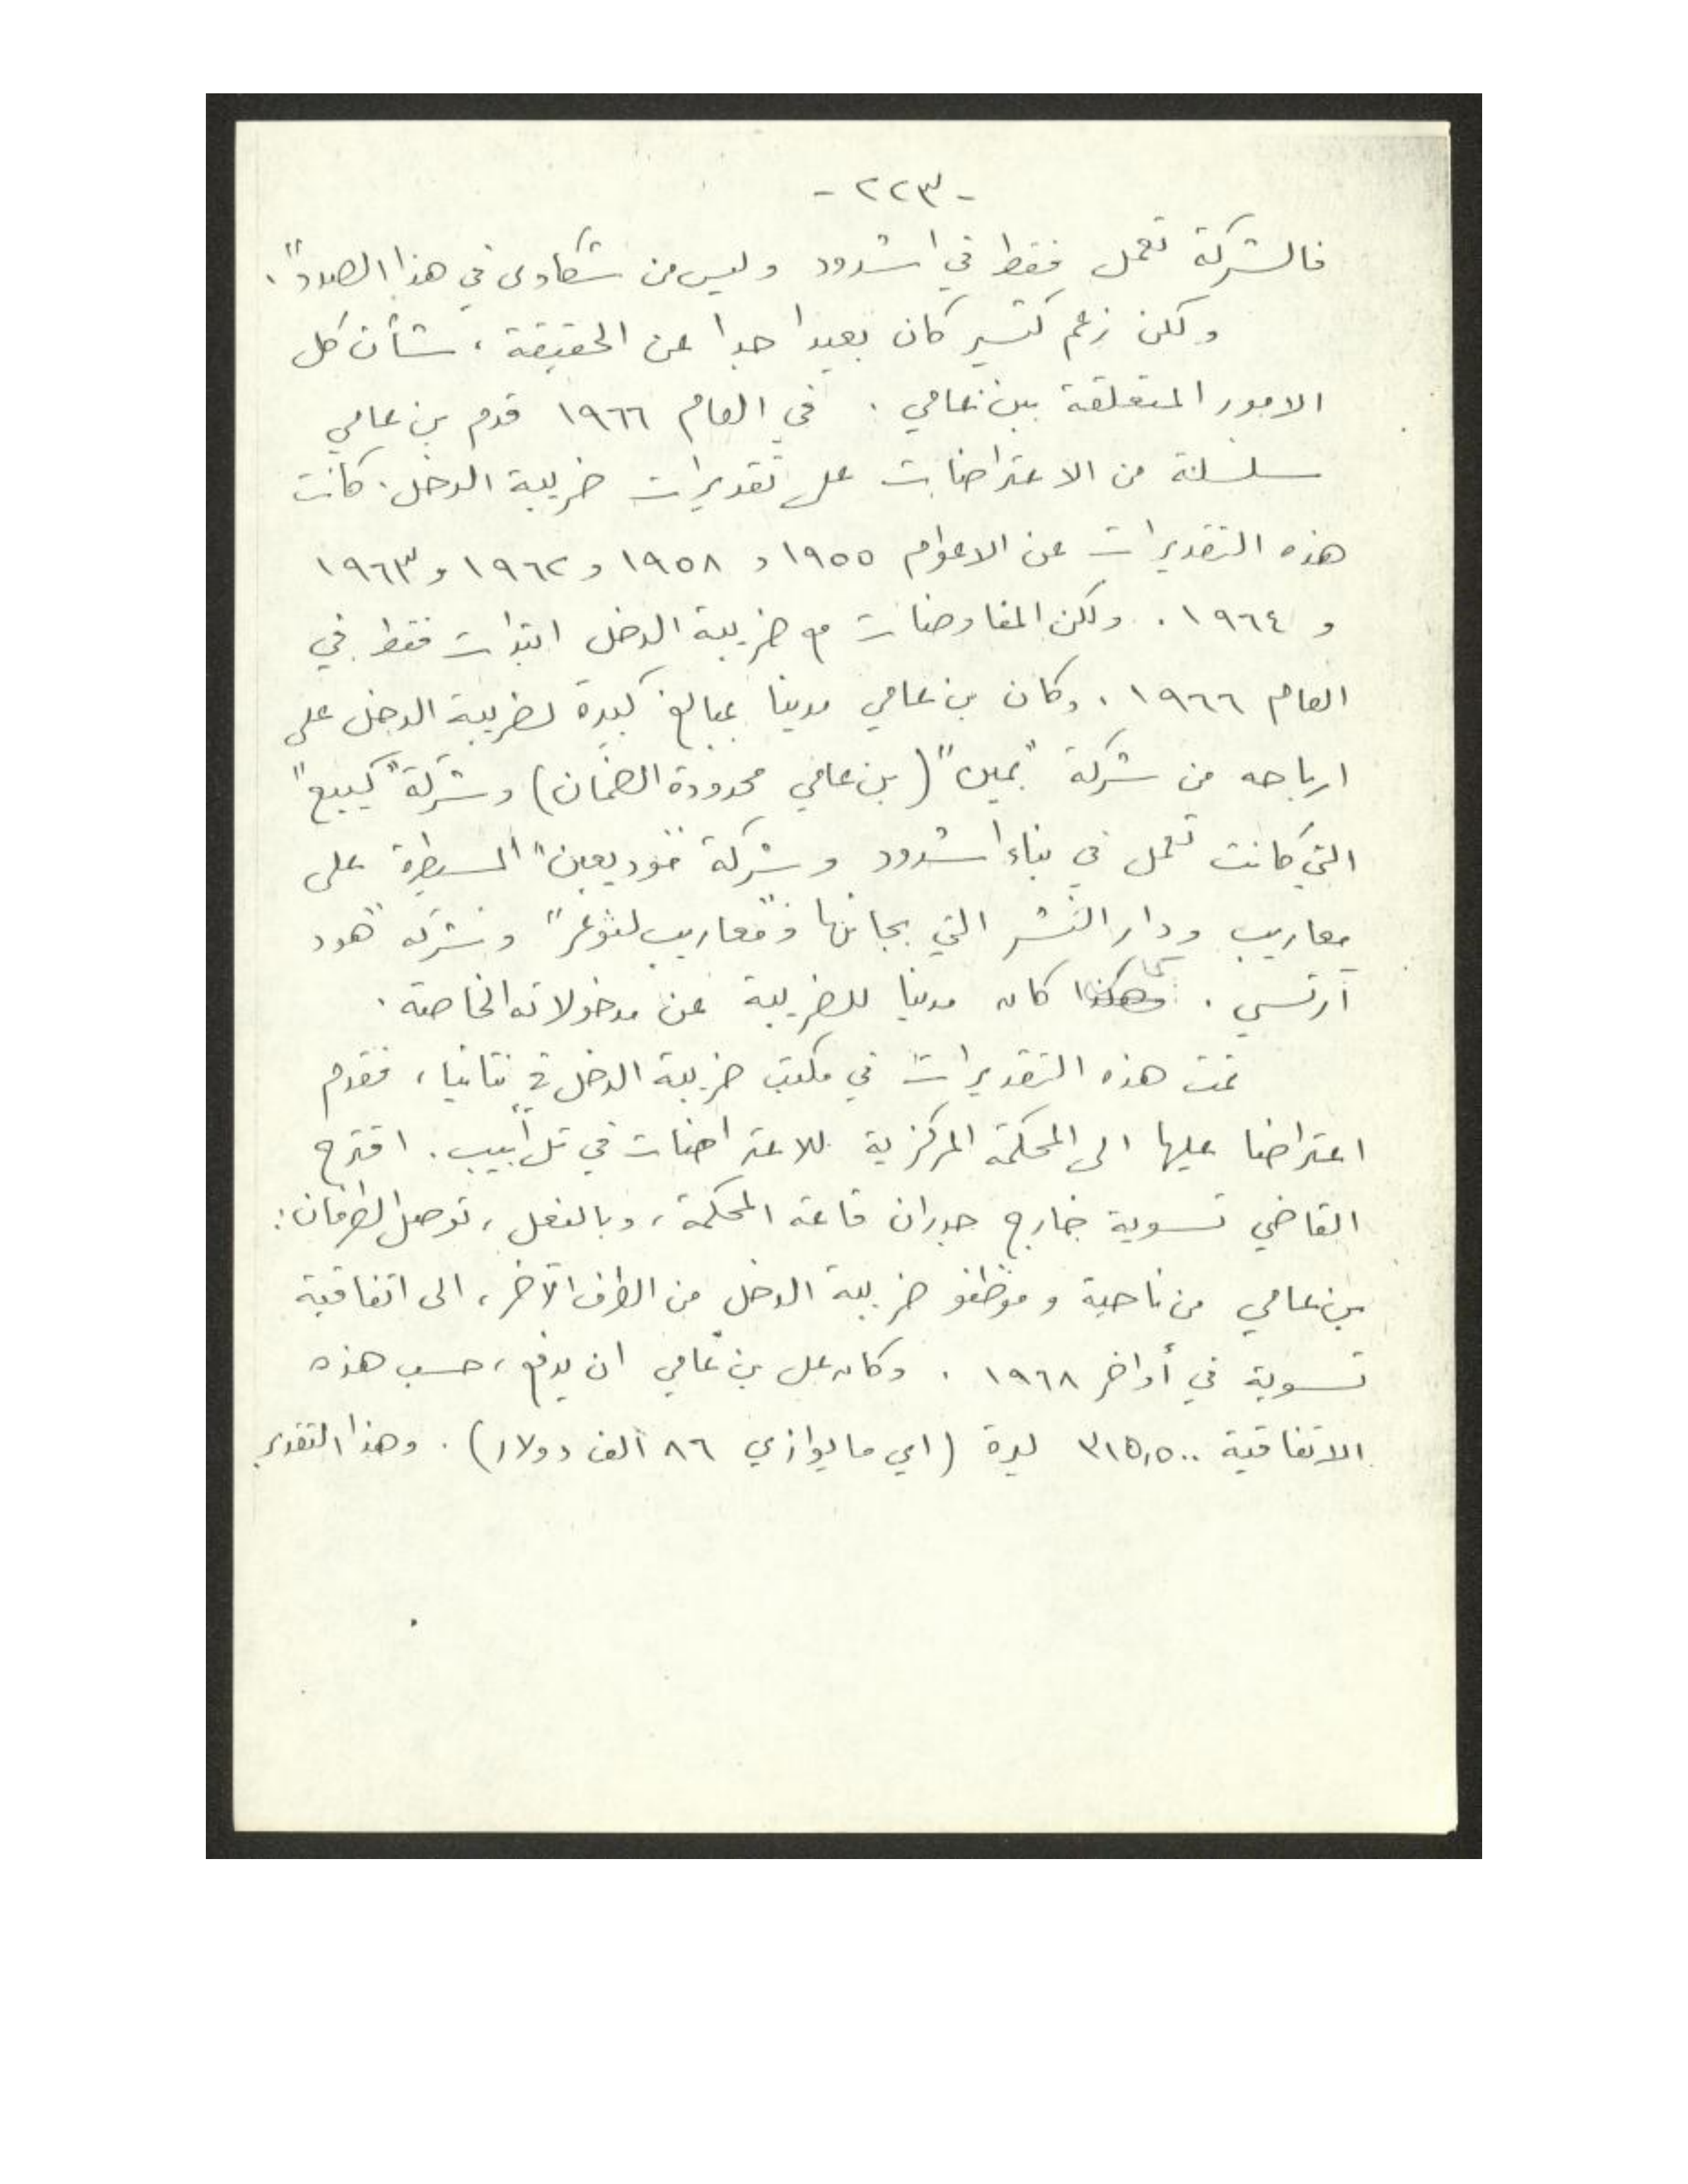 - ٢٢٣ -
فالشركة تعمل فقط في اشدود وليس من شكاوى في هذا الصدد".
ولكن زعم كتسير كان بعيدا جدا عن الحقيقة، شأن كل
الامور المتعلقة ببن عامي. في العام ١٩٦٦ قدم بن عامي
سلسلة من الاعتراضات على تقديرات ضريبة الدخل. كانت
هذه التقديرات عن الاعوام ١٩٥٥ و ١٩٥٨ و ١٩٦٢ و ١٩٦٣
و ١٩٦٤. ولكن المفاوضات مع ضريبة الدخل ابتدات فقط في
العام ١٩٦٦. وكان بن عامي مدينا بمبالغ كبيرة لضريبة الدخل على
ارباحه من شركة "بمين" (بن عامي محدودة الضمان) وشركة "كيبيع"
التي كانت تعمل في بناء اشدود وشركة "موديعين" المسيطرة على
معاريب ودار النشر التي بجانبها و"معاريب لنوعر" وشركة "هدد
آرتسي. كما كان مدينا للضريبة عن مدخولاته الخاصة.
تمت هذه التقديرات في مكتب ضريبة الدخل في نتانيا، فقدم
اعتراضا عليها الى المحكمة المركزية للاعتراضات في تل أبيب. اقترح
القاضي تسوية خارج جدران قاعة المحكمة، وبالفعل، توصل الطرفان:
بن عامي من ناحية وموظفو ضريبة الدخل من الطرف الآخر، الى اتفاقية
تسوية في أواخر ١٩٦٨. وكان على بن عامي ان يدفع، حسب هذه
الاتفاقية ٣١٥,٥٠٠ ليرة (اي ما يوازي ٨٦ الف دولار). وهذا التقدير